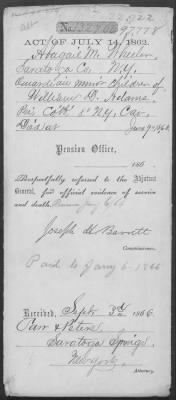 No. 132902
97778
ACT OF JULY 14, 1862.
Abagail M. Wheeler
Saratoga Co. N.Y.
Guardian minor Children of
William D. Adams
Pri Co "K" 2" N.Y. Cav.
Died at June 9" 1864
Pension Office,
186 .
Respectfully referred to the Adjutant
General, for official evidence of service
and death.
Joseph H. Barrett
Commissioner.
Paid to Jany 6 1866
Received, Sept 3d 1866
Parr & Peters
Saratoga Springs
New York
Attorney.